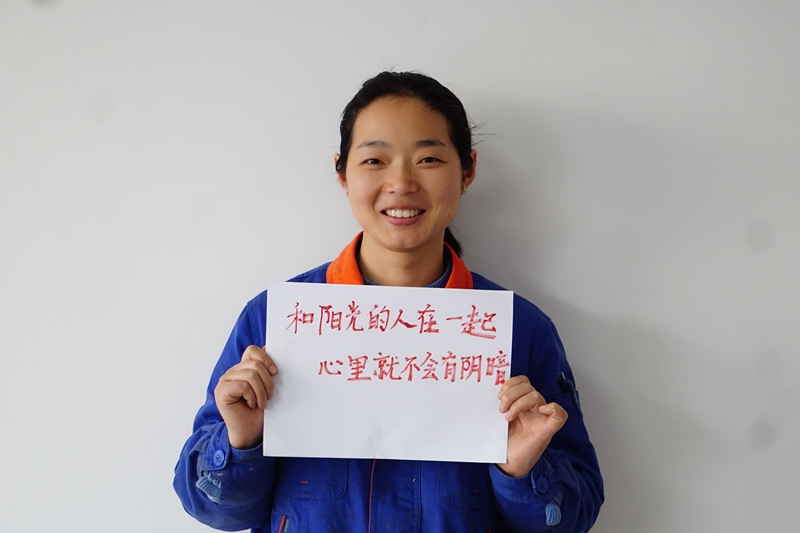 和阳光的人在一起
心里就不会有阴暗